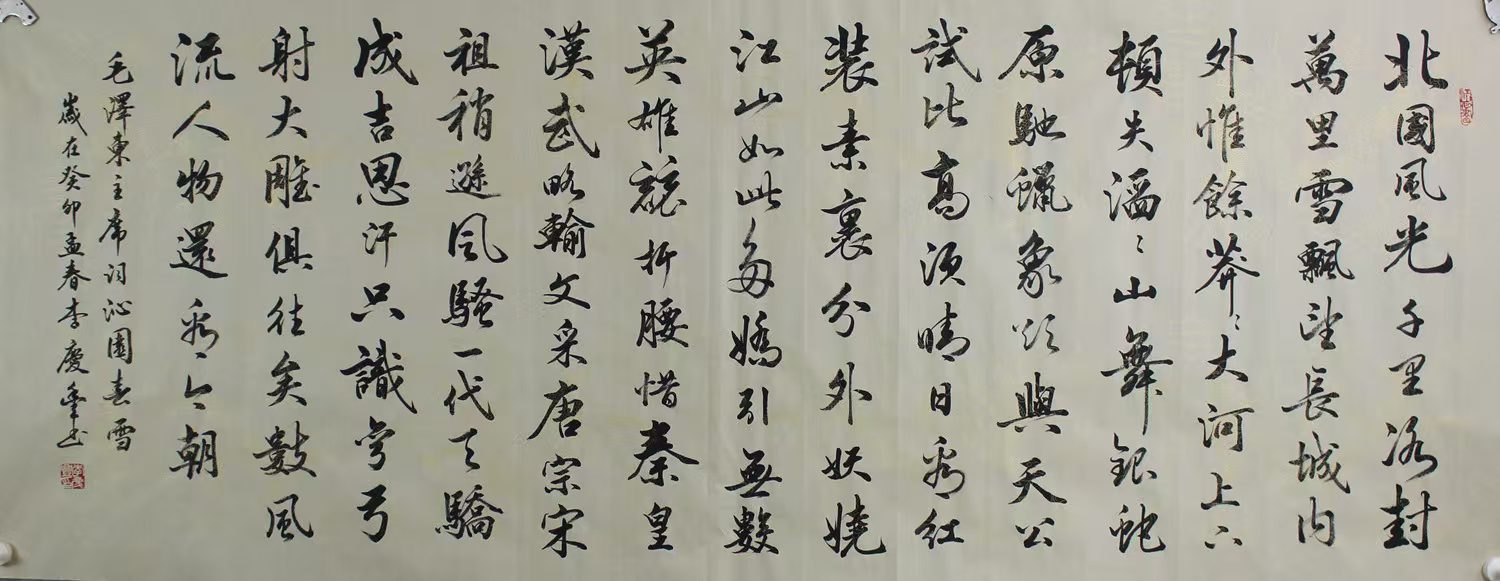 北國風光千里冰封
萬里雪飄望長城內
外惟餘莽〻大河上下
頓失滔〻山舞銀蛇
原馳蠟象欲與天公
試比高須晴日看紅
裝素裹分外妖嬈
江山如此多嬌引無數
英雄競折腰惜秦皇
漢武略輸文采唐宗宋
祖稍遜風騷一代天驕
成吉思汗只識彎弓
射大雕俱往矣數風
流人物還看今朝
毛澤東主席詞沁園春雪
歲在癸卯孟春李慶豐書